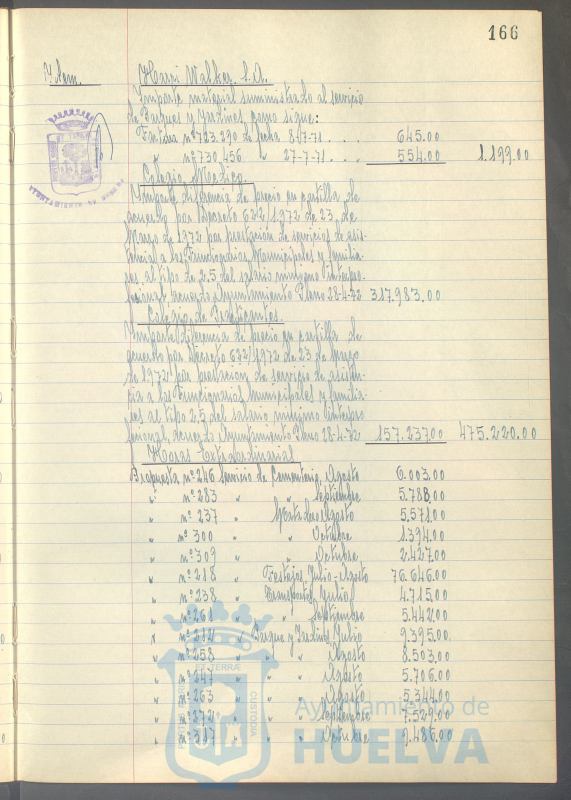 166
Harri Walker, S.A.
Importe material suministrado al servicio
de Parques y Jardines, como sigue:
Factura nº 723.290 de fecha 8-7-71 . . . 645.00
" nº 730.456 " 27-7-71 . . . 554.00 1.199.00
Colegio Medico.
Importe diferencia de precio en cartilla de
acuerdo por Decreto 622/1972 de 23 de
Marzo de 1972 por prestación de servicios de asis-
tencia a los Funcionarios Municipales y familia-
res al tipo de 2,5 del salario minimo interpro-
fesional acuerdo Ayuntamiento Pleno 28-4-72 317.983.00
Colegio de Practicantes.
Importe diferencia de precio en cartilla de
acuerdo por Decreto 622/1972 de 23 de marzo
de 1972 por prestacion de servicio de asisten-
cia a los Funcionarios municipales y familia-
res al tipo 2,5 del salario minimo interpro
fesional, acuerdo Ayuntamiento Pleno 28-4-72 157.237.00 475.220.00
Horas Extraordinarias
Propuesta nº 246 Servicio de Cementerio, Agosto 6.003.00
" nº 283 " " Septiembre 5.788.00
" nº 237 " Matadero Agosto 5.571.00
" nº 300 " " Octubre 1.394.00
" nº 309 " " Octubre 2.427.00
" nº 218 " Festejos, Julio-Agosto 76.646.00
" nº 238 " Transportes, Julio 4.715.00
" nº 261 " " Septiembre 5.442.00
" nº 212 " Parques y Jardines Julio 9.395.00
" nº 258 " " Agosto 8.503.00
" nº 247 " " Agosto 5.706.00
" nº 263 " " Agosto 5.344.00
" nº 272 " " Septiembre 7.529.00
" nº 317 " " Octubre 9.486.00
Ayuntamiento de
HUELVA